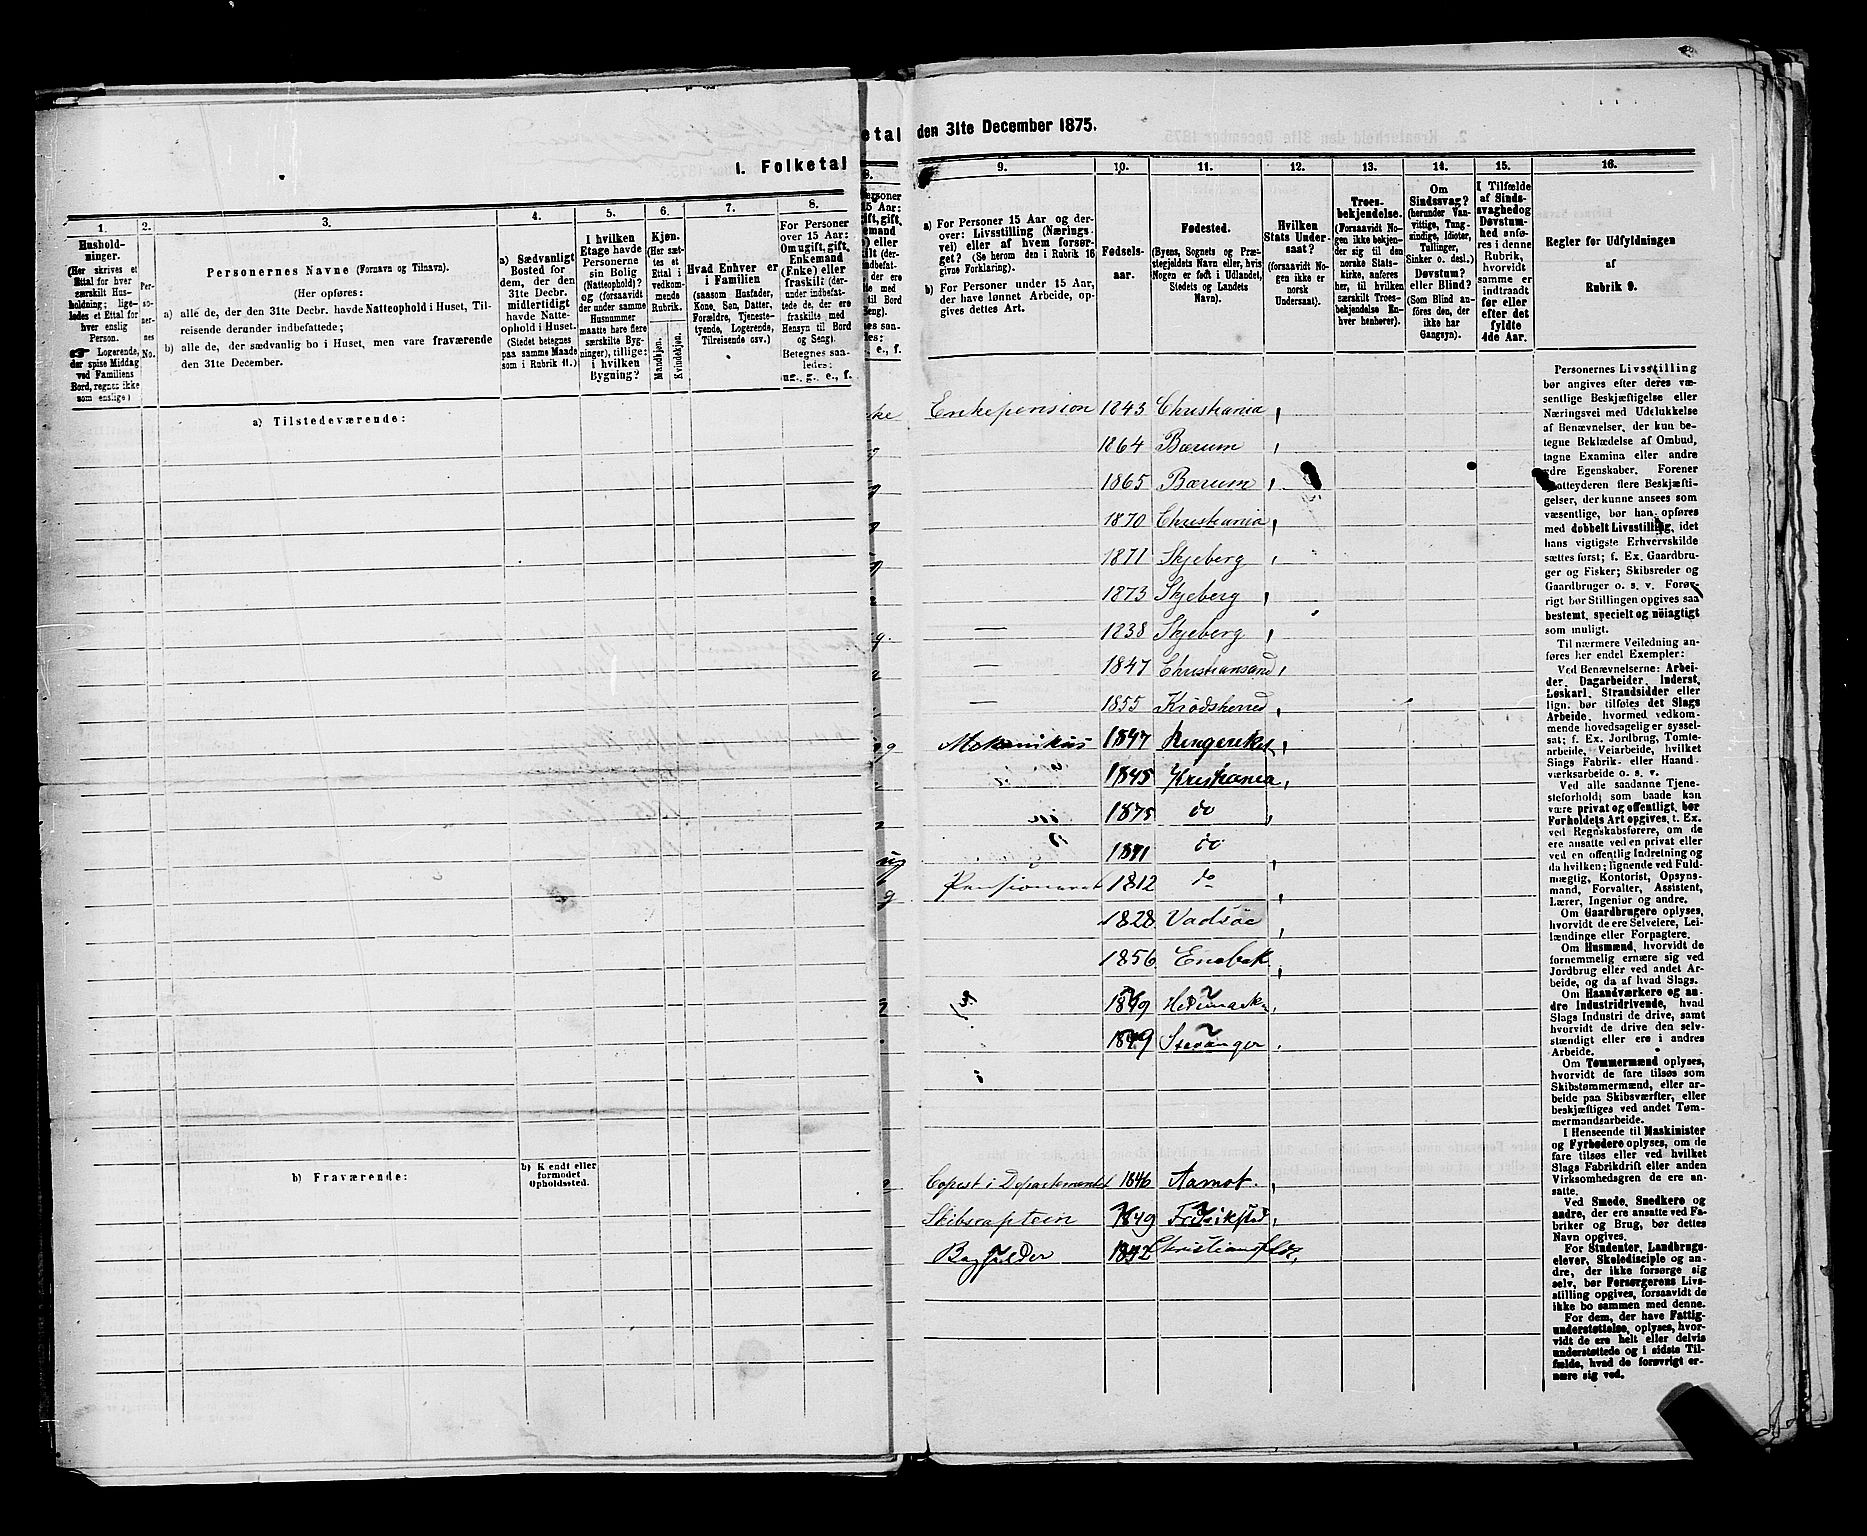 1. Folketal
1.
2.
3.
4.
5.
6.
7.
8.
Hushold-
ninger.
(Her skrives et
Ettal for hver
særskilt Hus-
holdning; lige-
ledes et Ettal for
hver enslig
Person.
Logerende,
der spise Middag
ved Familiens
Bord, regnes ikke
som enslige)
Per-
so-
ner-
nes
No.
Personernes Navne (Fornavn og Tilnavn).
(Her opføres:
a) alle de, der den 31te Decbr. havde Natteophold i Huset, Til-
reisende derunder indbefattede;
b) alle de, der sædvanlig bo i Huset, men vare fraværende
den 31te December.
a) Sædvanligt
Bosted for
dem, der den
31te Decbr.
midlertidigt
havde Natte-
ophold i Huset.
(Stedet betegnes
paa samme Maade
som i Rubrik 11.)
I hvilken
Etage havde
Personerne
sin Bolig
(Natteophold)?
og (forsaavidt
der under samme
Husnummer
maatte høre flere
særskilte Byg-
ninger), tillige:
i hvilken
Bygning?
Kjøn.
(Her sæt-
tes et
Ettal i
vedkom-
mende
Rubrik.
Mandkjøn.
Kvindekjøn.
Hvad Enhver er
i Familien
(saasom Husfader,
Kone, Søn, Datter,
Forældre, Tjeneste-
tyende, Logerende,
Tilreisende osv.)
For Personer
over 15 Aar:
Om ugift, gift,
Enkemand
(Enke) eller
fraskilt (der-
under indbefat-
tede de, der ere
fraskilte med
Hensyn til Bord
og Seng).
Betegnes saa-
ledes:
ug., g., e., f.
a) Tilstedeværende:
b) Fraværende:
b) Kjendt eller
formodet
Opholdssted.
etal
den 31te December 1875.
9.
10.
11.
12.
13.
14.
15.
16.
a) For Personer 15 Aar og der-
over: Livsstilling (Nærings-
vei) eller af hvem forsør-
get? (Se herom den i Rubrik 16
givne Forklaring).
b) For Personer under 15 Aar,
der have lønnet Arbeide, op-
gives dettes Art.
Fødsels-
aar.
Fødested.
(Byens, Sognets og Præ-
stegjeldets Navn eller, hvis
Nogen er født i Udlandet,
Stedets og Landets
Navn).
Hvilken
Stats Under-
saat?
(forsaavidt No-
gen ikke er
norsk
Undersaat).
Troes-
bekjendelse.
(Forsaavidt No-
gen ikke bekjen-
der sig til den
norske Stats-
kirke, anføres
her, til hvilken
særskilt Troes-
bekjendelse En-
hver henhører).
Om
Sindssvag?
(herunder Van-
vittige, Tung-
sindige, Idioter,
Tullinger,
Sinker o. desl.)
Døvstum?
eller Blind?
(Som Blind an-
føres den, der
ikke har
Gangsyn).
I Tilfælde
af Sinds-
svaghed og
Døvstum-
hed anfø-
res i denne
Rubrik,
hvorvidt
samme er
indtraadt
før eller
efter det
fyldte
4de Aar.
Regler for Udfyldningen
af
Rubrik 9.
Enkepension 1843 Christiania
1864 Bærum
1865 Bærum
1870 Christiania
1871 Skjeberg
1873 Skjeberg
— 1838 Skjeberg
— 1847 Christiansand
— 1855 Krødsherred
Mekanikus 1847 Ringeriket
1845 Kristiania
1875 do
1871 do
Pensioneret 1812 do
1828 Vadsöe
1856 Enebak
1849 Hedemark
1849 Stavanger
Copist i Departementet 1846 Aamot.
Skibscaptein 1849 Fredrikstad
Bogholder 1842
Personernes Livsstilling
bør angives efter deres væ-
sentlige Beskjæftigelse eller
Næringsvei med Udelukkelse
af Benævnelser, der kun be-
tegne Beklædelse af Ombud,
tagne Examina eller andre
ydre Egenskaber. Forener
Skatteyderen flere Beskjæfti-
gelser, der kunne ansees som
væsentlige, bør han opføres
med dobbelt Livsstilling, idet
hans vigtigste Erhvervskilde
sættes først; f. Ex. Gaardbru-
ger og Fisker; Skibsreder og
Gaardbruger o. s. v. Forøv-
rigt bør Stillingen opgives saa
bestemt, specielt og nøiagtigt
som muligt.
Til nærmere Veiledning an-
føres her endel Exempler:
Ved Benævnelserne: Arbei-
der, Dagarbeider, Inderst,
Løskarl, Strandsidder eller
lign. bør tilføies det Slags
Arbeide, hvormed vedkom-
mende hovedsagelig er syssel-
sat; f. Ex. Jordbrug, Tomte-
arbeide, Veiarbeide, hvilket
Slags Fabrik- eller Haand-
værksarbeide o. s. v.
Ved alle saadanne Tjene-
steforhold, som baade kan
være privat og offentligt, bør
Forholdets Art opgives, t. Ex.
ved Regnskabsførere, om de
ere ansatte ved en privat eller
ved en offentlig Indretning og
da hvilken; lignende ved Fuld-
mægtig, Kontorist, Opsyns-
mand, Forvalter, Assistent,
Lærer, Ingeniør og andre.
Om Gaardbrugere oplyses,
hvorvidt de ere Selveiere, Lei-
lændinge eller Forpagtere.
Om Husmænd, hvorvidt de
fornemmelig ernære sig ved
Jordbrug eller ved andet Ar-
beide, og da af hvad Slags.
Om Haandværkere og an-
dre Industridrivende, hvad
Slags Industri de drive, samt
hvorvidt de drive den selv-
stændigt eller ere i andres
Arbeide.
Om Tømmermænd oplyses,
hvorvidt de fare tilsøs som
Skibstømmermænd, eller ar-
beide paa Skibsværfter, eller
beskjæftiges ved andet Tøm-
mermandsarbeide.
I Henseende til Maskinister
og Fyrbødere oplyses, om de
fare tilsøs eller ved hvilket
Slags Fabrikdrift eller anden
Virksomhedsgren de ere an-
satte.
Ved Smede, Snedkere og
andre, der ere ansatte ved Fa-
briker og Brug, bør dettes
Navn opgives.
For Studenter, Landbrugs-
elever, Skoledisciple og an-
dre, der ikke forsørge sig
selv, bør Forsørgerens Livs-
stilling opgives, forsaavidt de
ikke bo sammen med denne.
For dem, der have Fattig-
understøttelse, oplyses, hvor-
vidt de ere helt eller delvis
understøttede og i sidste Til-
fælde, hvad de forøvrigt er-
nære sig ved.